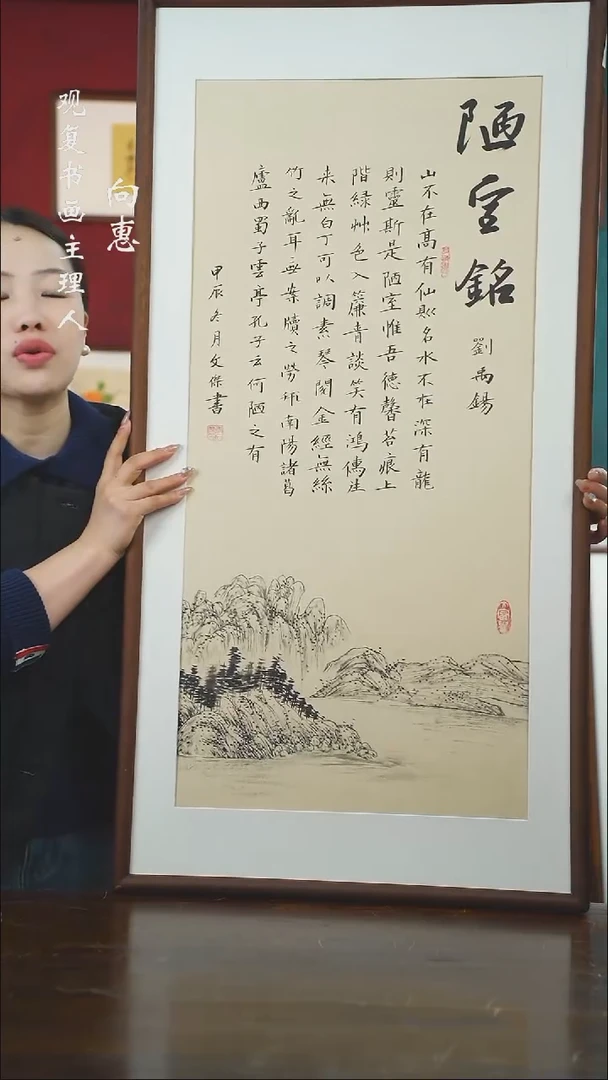 陋室銘
劉禹錫
山不在髙有仙則名水不在深有龍
則靈斯是陋室惟吾德馨苔痕上
階緑艸色入簾青談笑有鴻儒往
来無白丁可以調素琴閲金經無絲
竹之亂耳無案牘之勞形南陽諸葛
廬西蜀子雲亭孔子云何陋之有
甲辰冬月文傑書
向惠
观复书画主理人